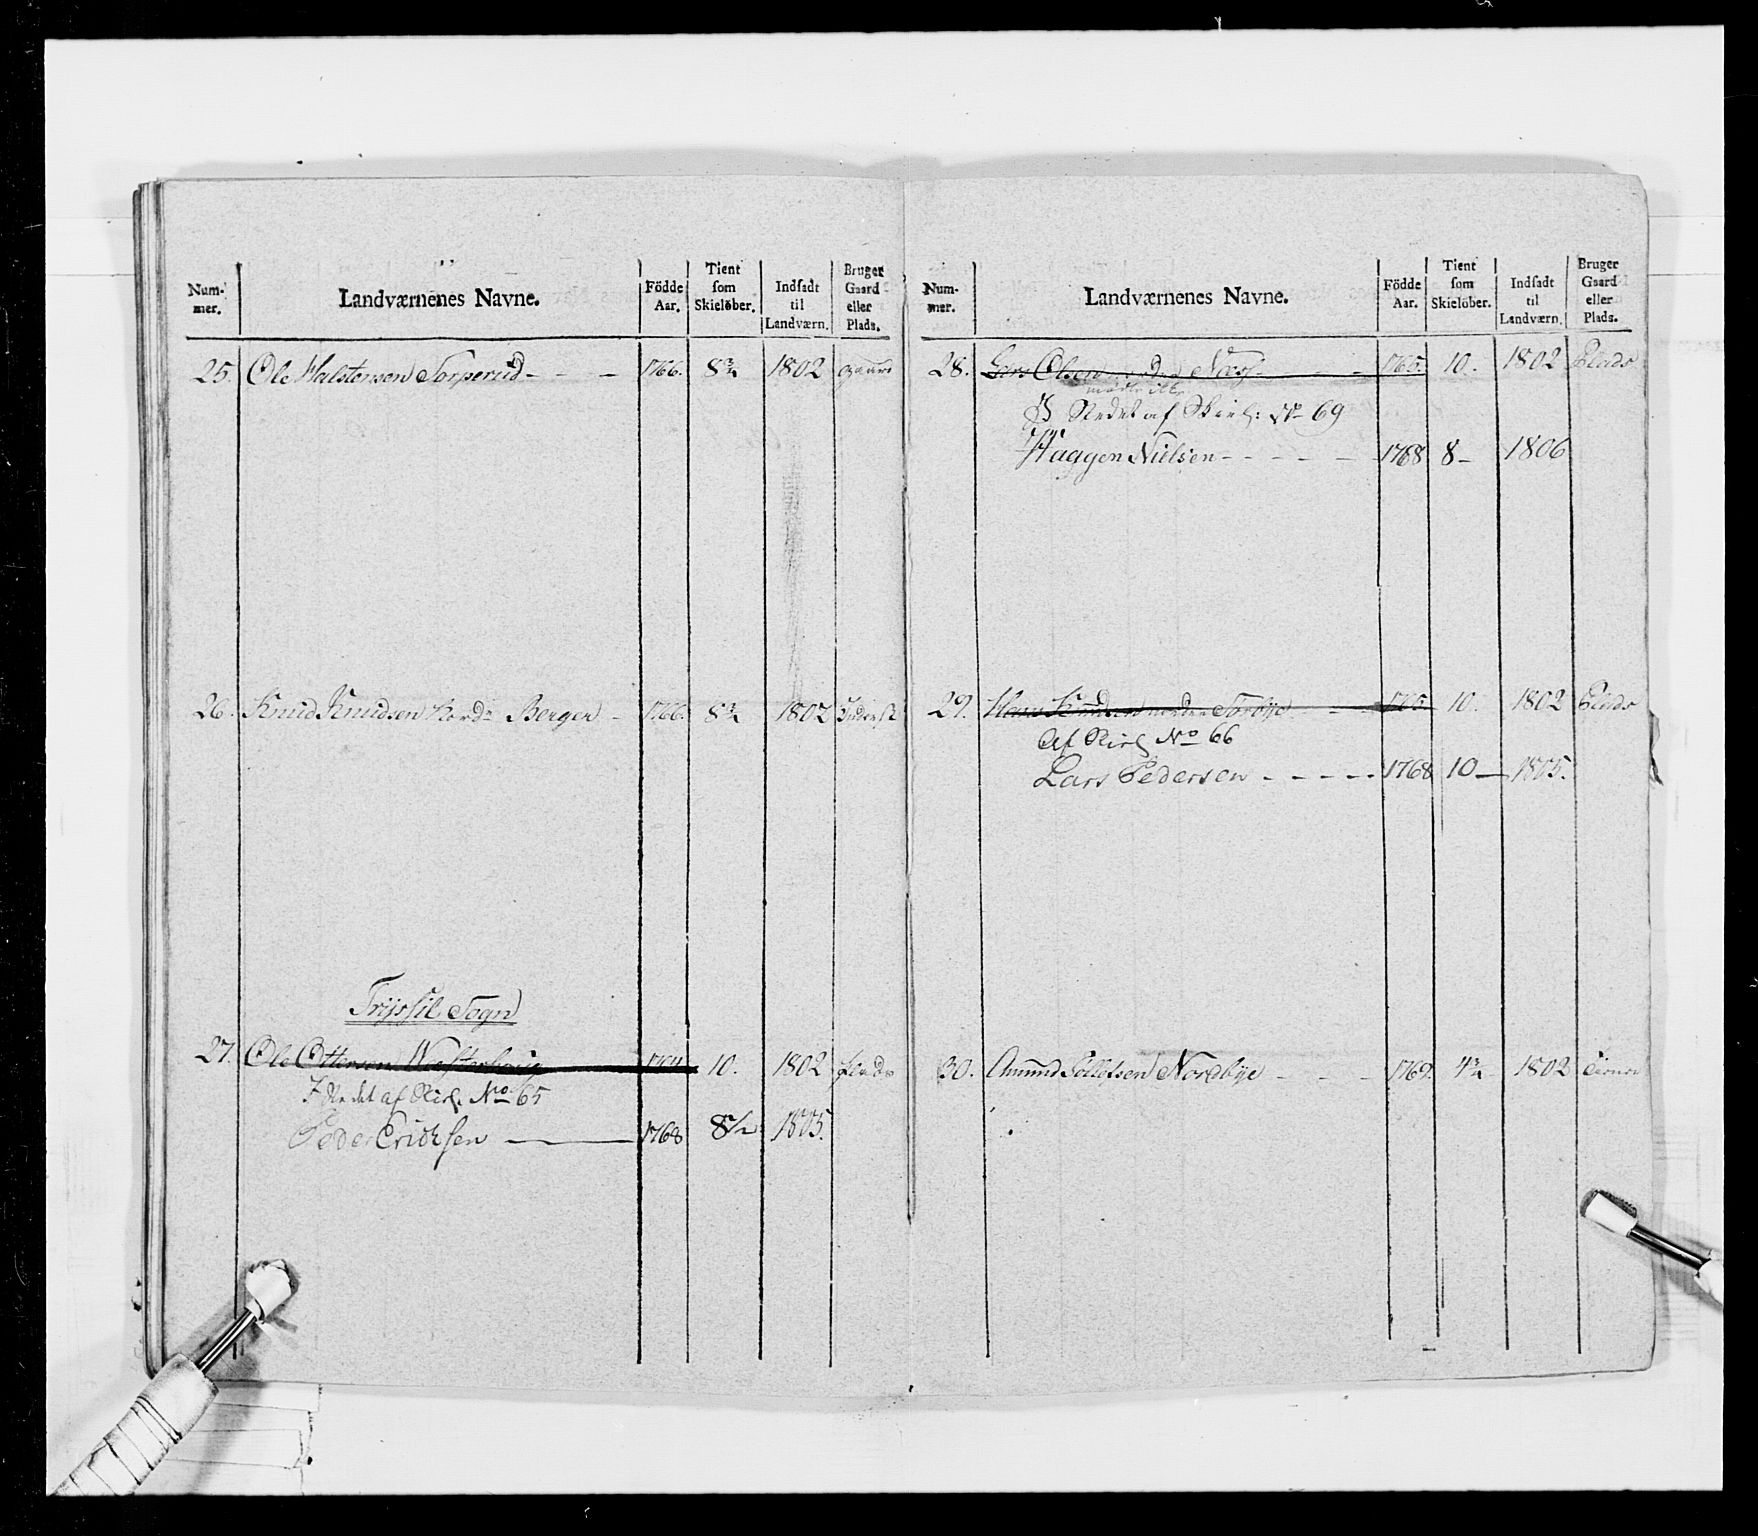 Num-
mer.
Landværnenes Navne.
Födde
Aar.
Tient
som
Skielöber.
Indsadt
til
Landværn.
Bruger
Gaard
eller
Plads.
25. Ole Halstensen Torperud - - - 1766. 8¾ 1802 gaard
26. Knud Knudsen Bergen - 1766. 8¾ 1802 Inderst
Tryssil Sogn
27. Ole Ottersen 10. 1802 Plads
af No 65
Peder Ericksen 1768 8½ 1805.
Num-
mer.
Landværnenes Navne.
Födde
Aar.
Tient
som
Skielöber.
Indsadt
til
Landværn.
Bruger
Gaard
eller
Plads.
28. Lars Olsen Næss - - 1765. 10. 1802 Plads
af No 69
Haagen Nielsen - - - - - 1768 8 - 1806
29. 1765. 10. 1802 Plads
Af No 66
Lars Pedersen - - - - - 1768 10 - 1805.
30. Amund Tollefsen Nordbye - - - 1769. 4¾ 1802